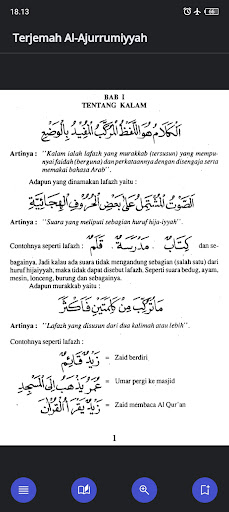 18.13
Terjemah Al-Ajurrumiyyah
BAB I
TENTANG KALAM
الْكَلَامُ هُوَ اللَّفْظُ الْمُرَكَّبُ الْمُفِيْدُ بِالْوَضْعِ
Artinya : "Kalam ialah lafazh yang murakkab (tersusun) yang mempu-
nyai faidah (berguna) dan perkataannya dengan disengaja serta
memakai bahasa Arab".
Adapun yang dinamakan lafazh yaitu :
الصَّوْتُ الْمُشْتَمِلُ عَلَى بَعْضِ الْحُرُوْفِ الْهِجَائِيَّةِ
Artinya : "Suara yang meliputi sebagian huruf hija-iyyah".
Contohnya seperti lafazh : كِتَابٌ، مَدْرَسَةٌ، قَلَمٌ dan se-
bagainya. Jadi kalau ada suara tidak mengandung sebagian (salah satu) dari
huruf hijaiyyah, maka tidak dapat disebut lafazh. Seperti suara bedug, ayam,
mesin, lonceng, burung dan sebagainya.
Adapun murakkab yaitu :
مَا تَرَكَّبَ مِنْ كَلِمَتَيْنِ فَأَكْثَرَ
Artinya : "Lafazh yang disusun dari dua kalimah atau lebih".
Contohnya seperti lafazh :
زَيْدٌ قَائِمٌ = Zaid berdiri
عُمَرُ يَذْهَبُ إِلَى الْمَسْجِدِ = Umar pergi ke masjid
زَيْدٌ يَقْرَأُ الْقُرْآنَ = Zaid membaca Al Qur'an
1